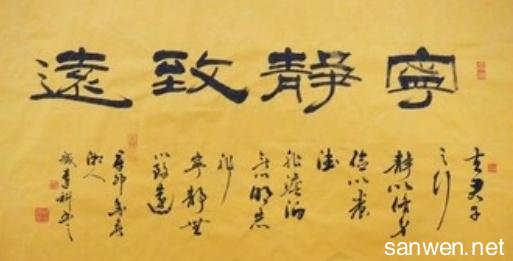 寧靜致遠
夫君子
之行
靜以修身
儉以養
德
非澹泊
無以明志
非
寧靜無
以致遠
辛卯年春
sanwen.net